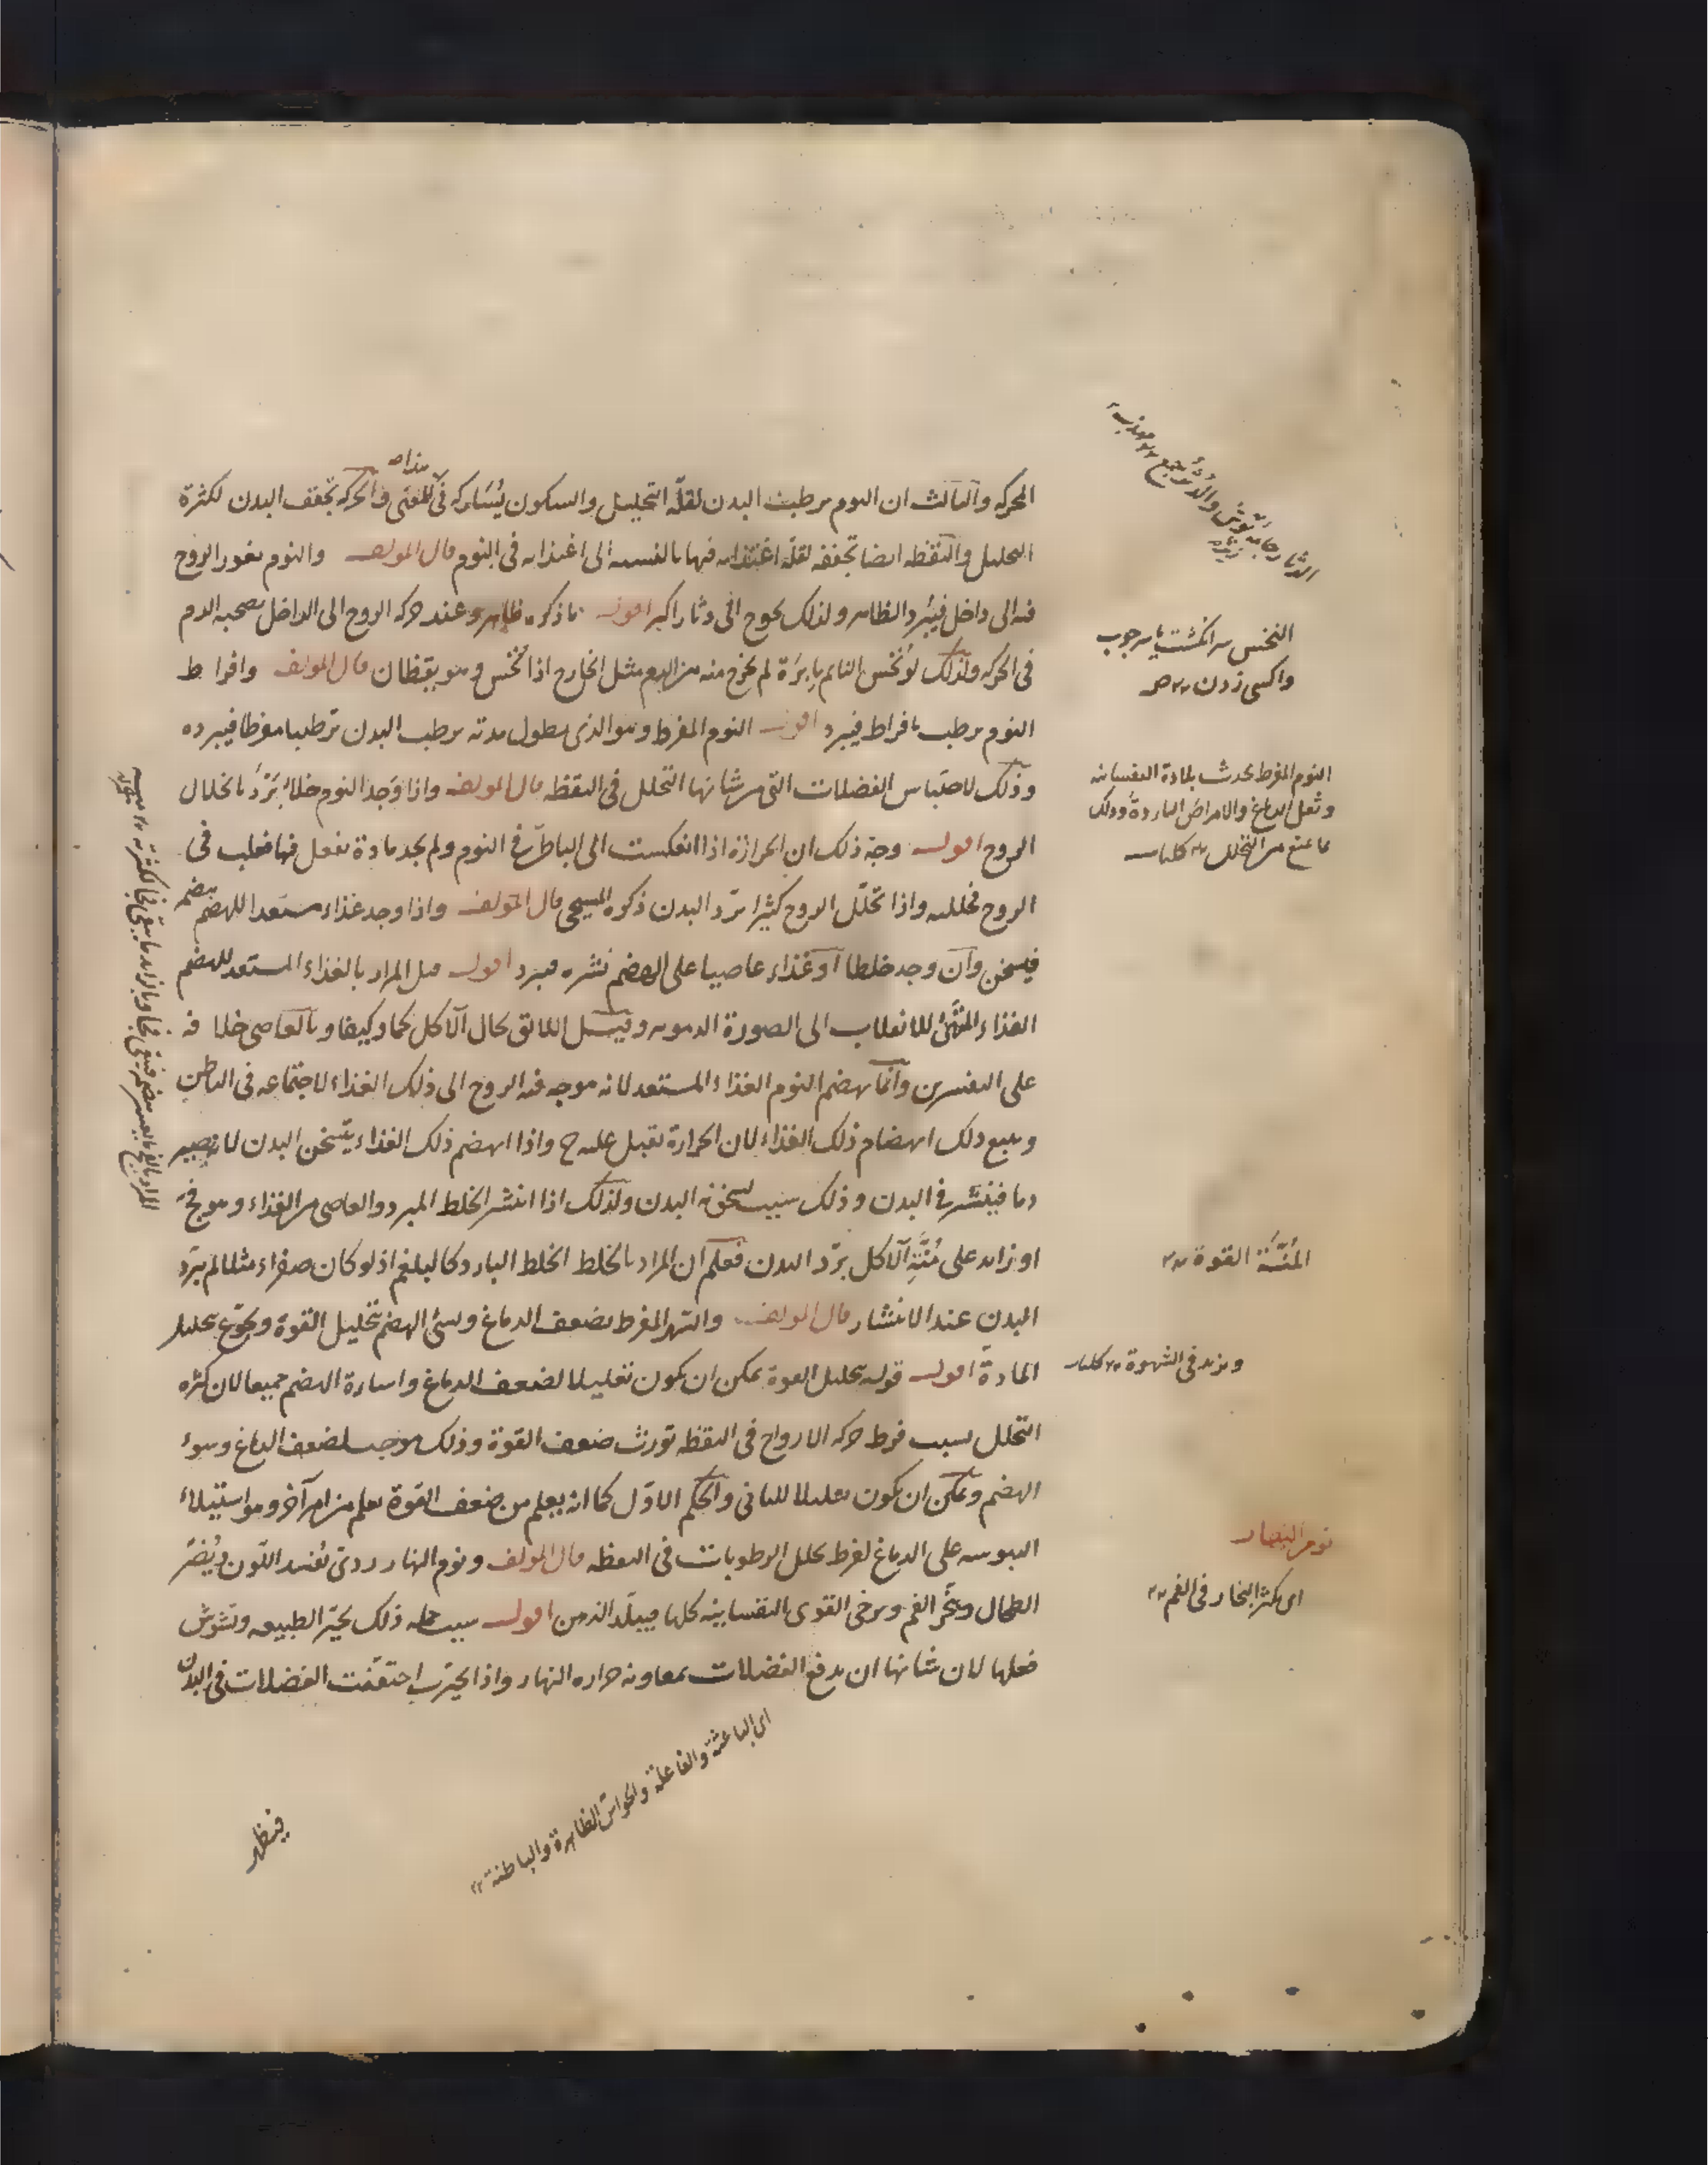 الحركة والثالث ان النوم يرطب البدن لقلة التحليل والسكون يُشاركه فى هذا المعنى والحركة تجفف البدن لكثرة
التحليل واليقظة ايضا تجففه لقلة اغتذائه فيها بالنسبة الى اغتذائه فى النوم قال المولف والنوم يغور الروح
فيه الى داخل فيبرد الظاهر ولذلك يحوج الى دثار اكبر اقول ما ذكره ظاهر وعند حركة الروح الى الداخل يصحبه الدم
فى الحركة ولذلك لو نُخس النايم بابرة لم يخرج منه من الدم مثل الخارج اذا نُخس وهو يقظان قال المولف وافراط
النوم يرطب بافراط فيبرد اقول النوم المفرط وهو الذى يطول مدته يرطب البدن ترطيبا مفرطا فيبرده
وذلك لاحتباس الفضلات التى من شانها التحلل فى اليقظة قال المولف واذا وجد النوم خلاء بَرّدَ بانحلال
الروح اقول وجه ذلك ان الحرارة اذا انعكست الى الباطن فى النوم ولم يجد مادة تفعل فيها فعلت فى
الروح فحللته واذا تحلّل الروح كثيرا برّد البدن ذكره المسيحى قال المولف واذا وجد غذاء مستعدا للهضم هضم
فيسخن وان وجد خلطا او غذاء عاصيا على الهضم نشره فبرد اقول قيل المراد بالغذاء المستعد للهضم
الغذاء المتهيئ للانقلاب الى الصورة الدموية وقيل اللائق بحال الآكل كما وكيفا وبالعاصى خلافه
على التفسيرين وانما يهضم النوم الغذاء المستعد لانه موجه فيه الروح الى ذلك الغذاء لاجتماعه فى الباطن
ويتبع ذلك انهضام ذلك الغذاء لان الحرارة تقبل عليه ح واذا انهضم ذلك الغذاء يتسخن البدن لانه يصير
دما فينتشر فى البدن وذلك سبب لسخونة البدن ولذلك اذا انتشر الخلط المبرد والعاصى من الغذاء وهو فج
او زايد على مُنّةِ الآكل برّد البدن فعلم ان المراد بالخلط الخلط البارد كالبلغم اذ لو كان صفراء مثلا لم يبرّد
البدن عند الانتشار قال المولف والسهر المفرط يضعف الدماغ ويسئ الهضم بتحليل القوة ويجوّع بتحليل
المادة اقول قوله بتحليل القوة يمكن ان يكون تعليلا لضعف الدماغ واساءة الهضم جميعا لان كثرة
التحلل بسبب فرط حركة الارواح فى اليقظة تورث ضعف القوة وذلك موجب لضعف الدماغ وسوء
الهضم ويمكن ان يكون تعليلا للثانى والحكم الاوّل كما انه يعلم من ضعف القوة يعلم من امر آخر وهو استيلاء
اليبوسة على الدماغ لفرط تحلل الرطوبات فى اليقظة قال المولف ونوم النهار ردى يُفسد اللون ويُضرّ
الطحال ويبخّر الفم ويرخى القوى النفسانية كلها فيبلّد الذهن اقول سبب جملة ذلك تحيّر الطبيعة وتشوش
فعلها لان شانها ان يدفع الفضلات بمعاونة حرارة النهار واذا تحيرت احتقنت الفضلات فى البدن
فيظهر
النخس سر انكشت يا سر چوب
واكسى زدن ص
النوم المفرط يحدث بلادة النفسانية
وثقل الدماغ والامراض الباردة وذلك
بما يمنع من التحلل كليات
المُنّة القوة
ويزيد فى الشهوة كليات
نوم النهار
اى يكثر البخار فى الفم
اى الباعثة والفاعلة والحواس الظاهرة والباطنة